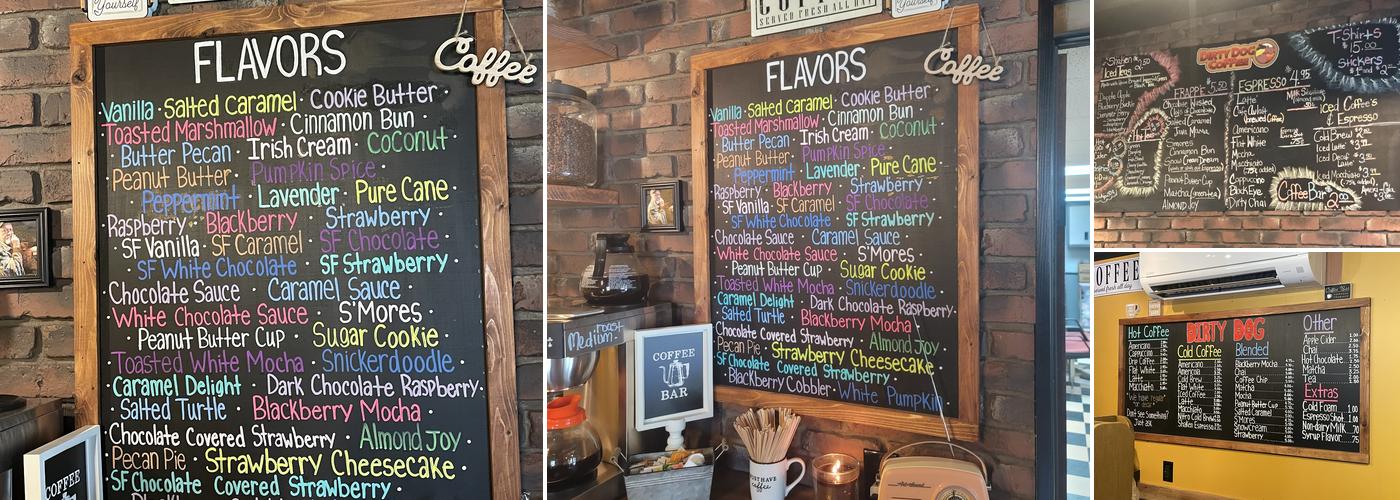 Yourself
FLAVORS
Coffee
Vanilla · Salted Caramel · Cookie Butter ·
Toasted Marshmallow · Cinnamon Bun ·
Butter Pecan · Irish Cream · Coconut
Peanut Butter · Pumpkin Spice ·
Peppermint · Lavender · Pure Cane ·
Raspberry · Blackberry · Strawberry ·
SF Vanilla · SF Caramel · SF Chocolate ·
SF White Chocolate · SF Strawberry ·
Chocolate Sauce · Caramel Sauce ·
· White Chocolate Sauce · S'Mores ·
Peanut Butter Cup · Sugar Cookie ·
Toasted White Mocha · Snickerdoodle ·
Caramel Delight · Dark Chocolate Raspberry ·
Salted Turtle · Blackberry Mocha ·
Chocolate Covered Strawberry · Almond Joy ·
· Pecan Pie · Strawberry Cheesecake ·
· SF Chocolate Covered Strawberry ·
COFFEE
COFFEE
SERVED FRESH ALL DAY
Yourself
FLAVORS
Coffee
Vanilla · Salted Caramel · Cookie Butter ·
Toasted Marshmallow · Cinnamon Bun ·
Butter Pecan · Irish Cream · Coconut
Peanut Butter · Pumpkin Spice ·
Peppermint · Lavender · Pure Cane ·
Raspberry · Blackberry · Strawberry ·
SF Vanilla · SF Caramel · SF Chocolate
· SF White Chocolate · SF Strawberry ·
Chocolate Sauce · Caramel Sauce ·
· White Chocolate Sauce · S'Mores ·
· Peanut Butter Cup · Sugar Cookie ·
Toasted White Mocha · Snickerdoodle ·
Caramel Delight · Dark Chocolate Raspberry ·
Salted Turtle · Blackberry Mocha ·
Chocolate Covered Strawberry · Almond Joy
· Pecan Pie · Strawberry Cheesecake
· SF Chocolate Covered Strawberry ·
· BlackBerry Cobbler · White Pumpkin
Medium Roast
COFFEE
BAR
MUST HAVE
COFFEE
T-Shirts
$15.00
Stickers
DIRTY DOG
COFFEE
Iced Teas
FRAPPÉ 5.50
Salted Caramel
Java Mama
S'mores
Cinnamon Bun
Snow Cream Dream
Peanut Butter Cup
Matcha (green tea)
ALMOND JOY
ESPRESSO 4.95
Latte
Americano
Flat White
Mocha
Macchiato
Cappuccino
Black Eye
Dirty Chai
Iced Coffee's
& Espresso
Cold Brew
Iced Latte
Iced Decaf
Latte
Iced Macchiato
Coffee Bar
2.00
OFFEE
served fresh all day
DIRTY DOG
Hot Coffee
Americano
Cappuccino
Drip Coffee
Flat White
Latte
Macchiato
"We have regular
or decaf"
Don't See Something?
Just ask
Cold Coffee
Americano
Cold Brew
Flat White
Iced Coffee
Latte
Macchiato
Nitro Cold Brew
Shaken Espresso
Blended
Blackberry Mocha
Chai
Coffee Chip
Matcha
Mocha
Peanut Butter Cup
Salted Caramel
S'mores
Snowcream
Strawberry
Other
Apple Cider
Chai
Hot Chocolate
Matcha
Tea
Extras
Cold Foam 1.00
Espresso Shot 1.00
Non-dairy Milk .70
Syrup Flavor .75